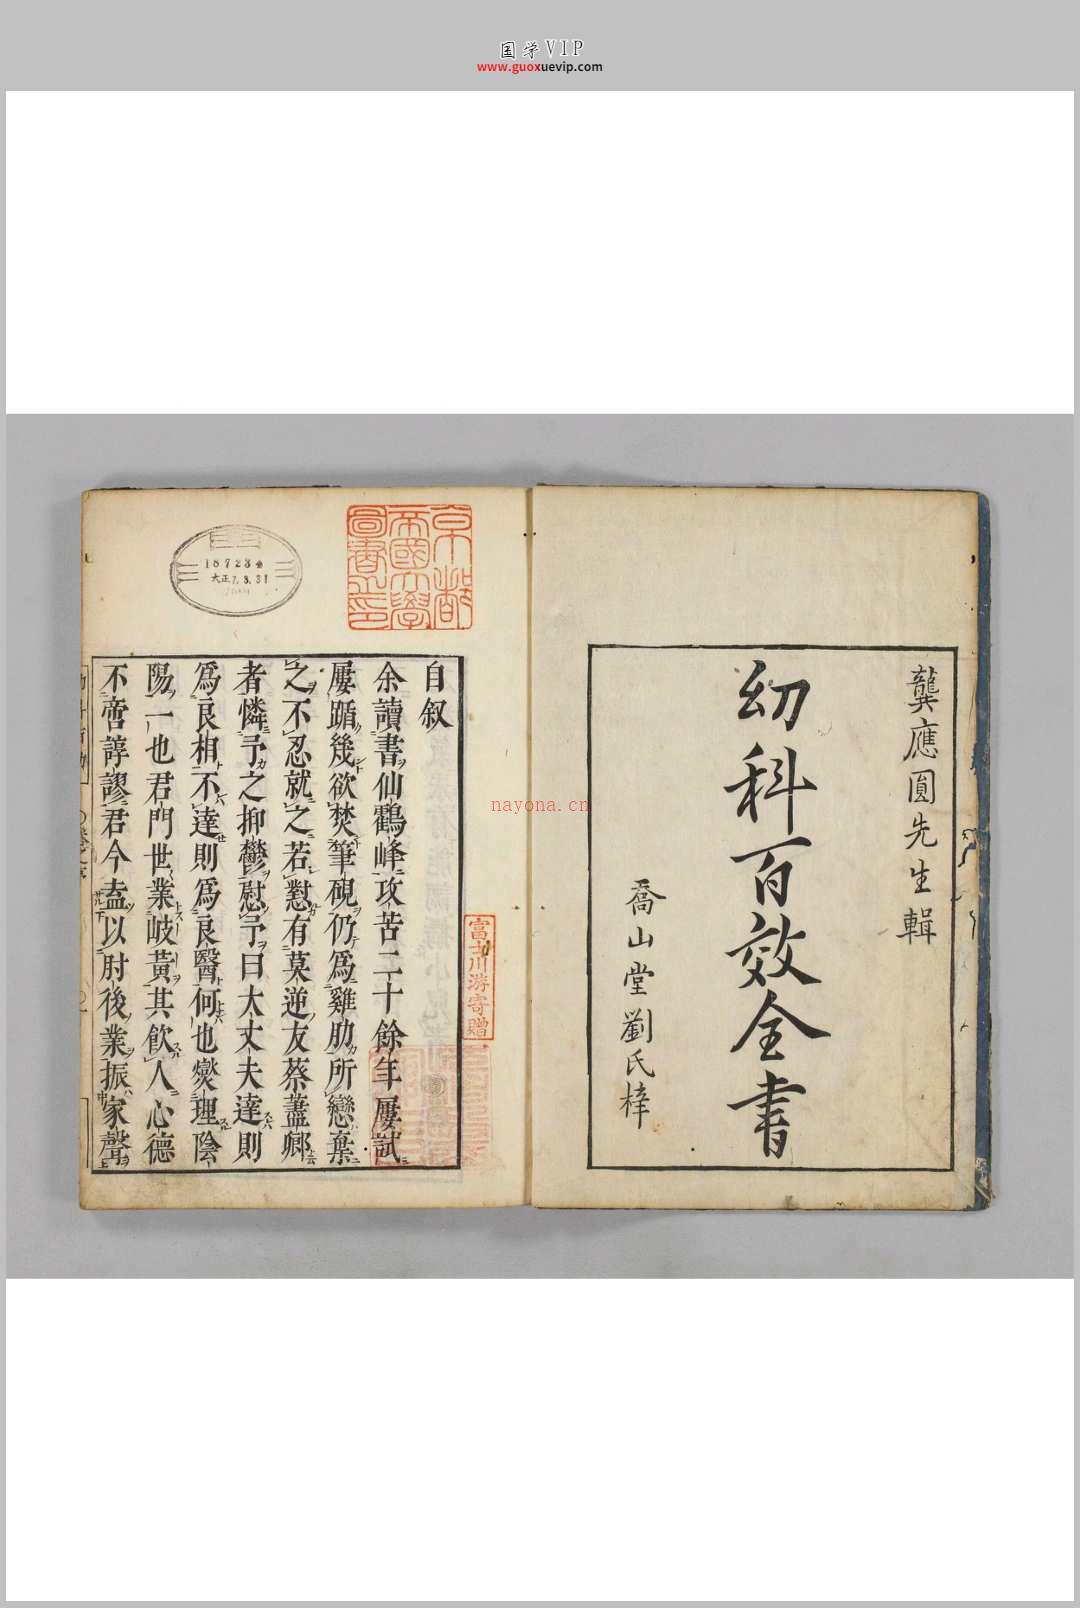 国学VIP
www.guoxuevip.com
龔應圓先生輯
幼科百效全書
喬山堂劉氏梓
京都
帝國大學
圖書之印
187234
大正7.3.31
富士川游寄贈
自叙
余讀書仙鶴峰攻苦二十餘年屢試
屢踬幾欲焚筆硯仍爲雞肋所戀棄
之不忍就之若懟有莫逆友蔡藎卿
者憐予之抑鬱慰予曰大丈夫達則
爲良相不達則爲良醫何也燮理陰
陽一也君門世業岐黃其飲人心德
不啻諄謬君今盍以肘後業振家聲
nayona.cn